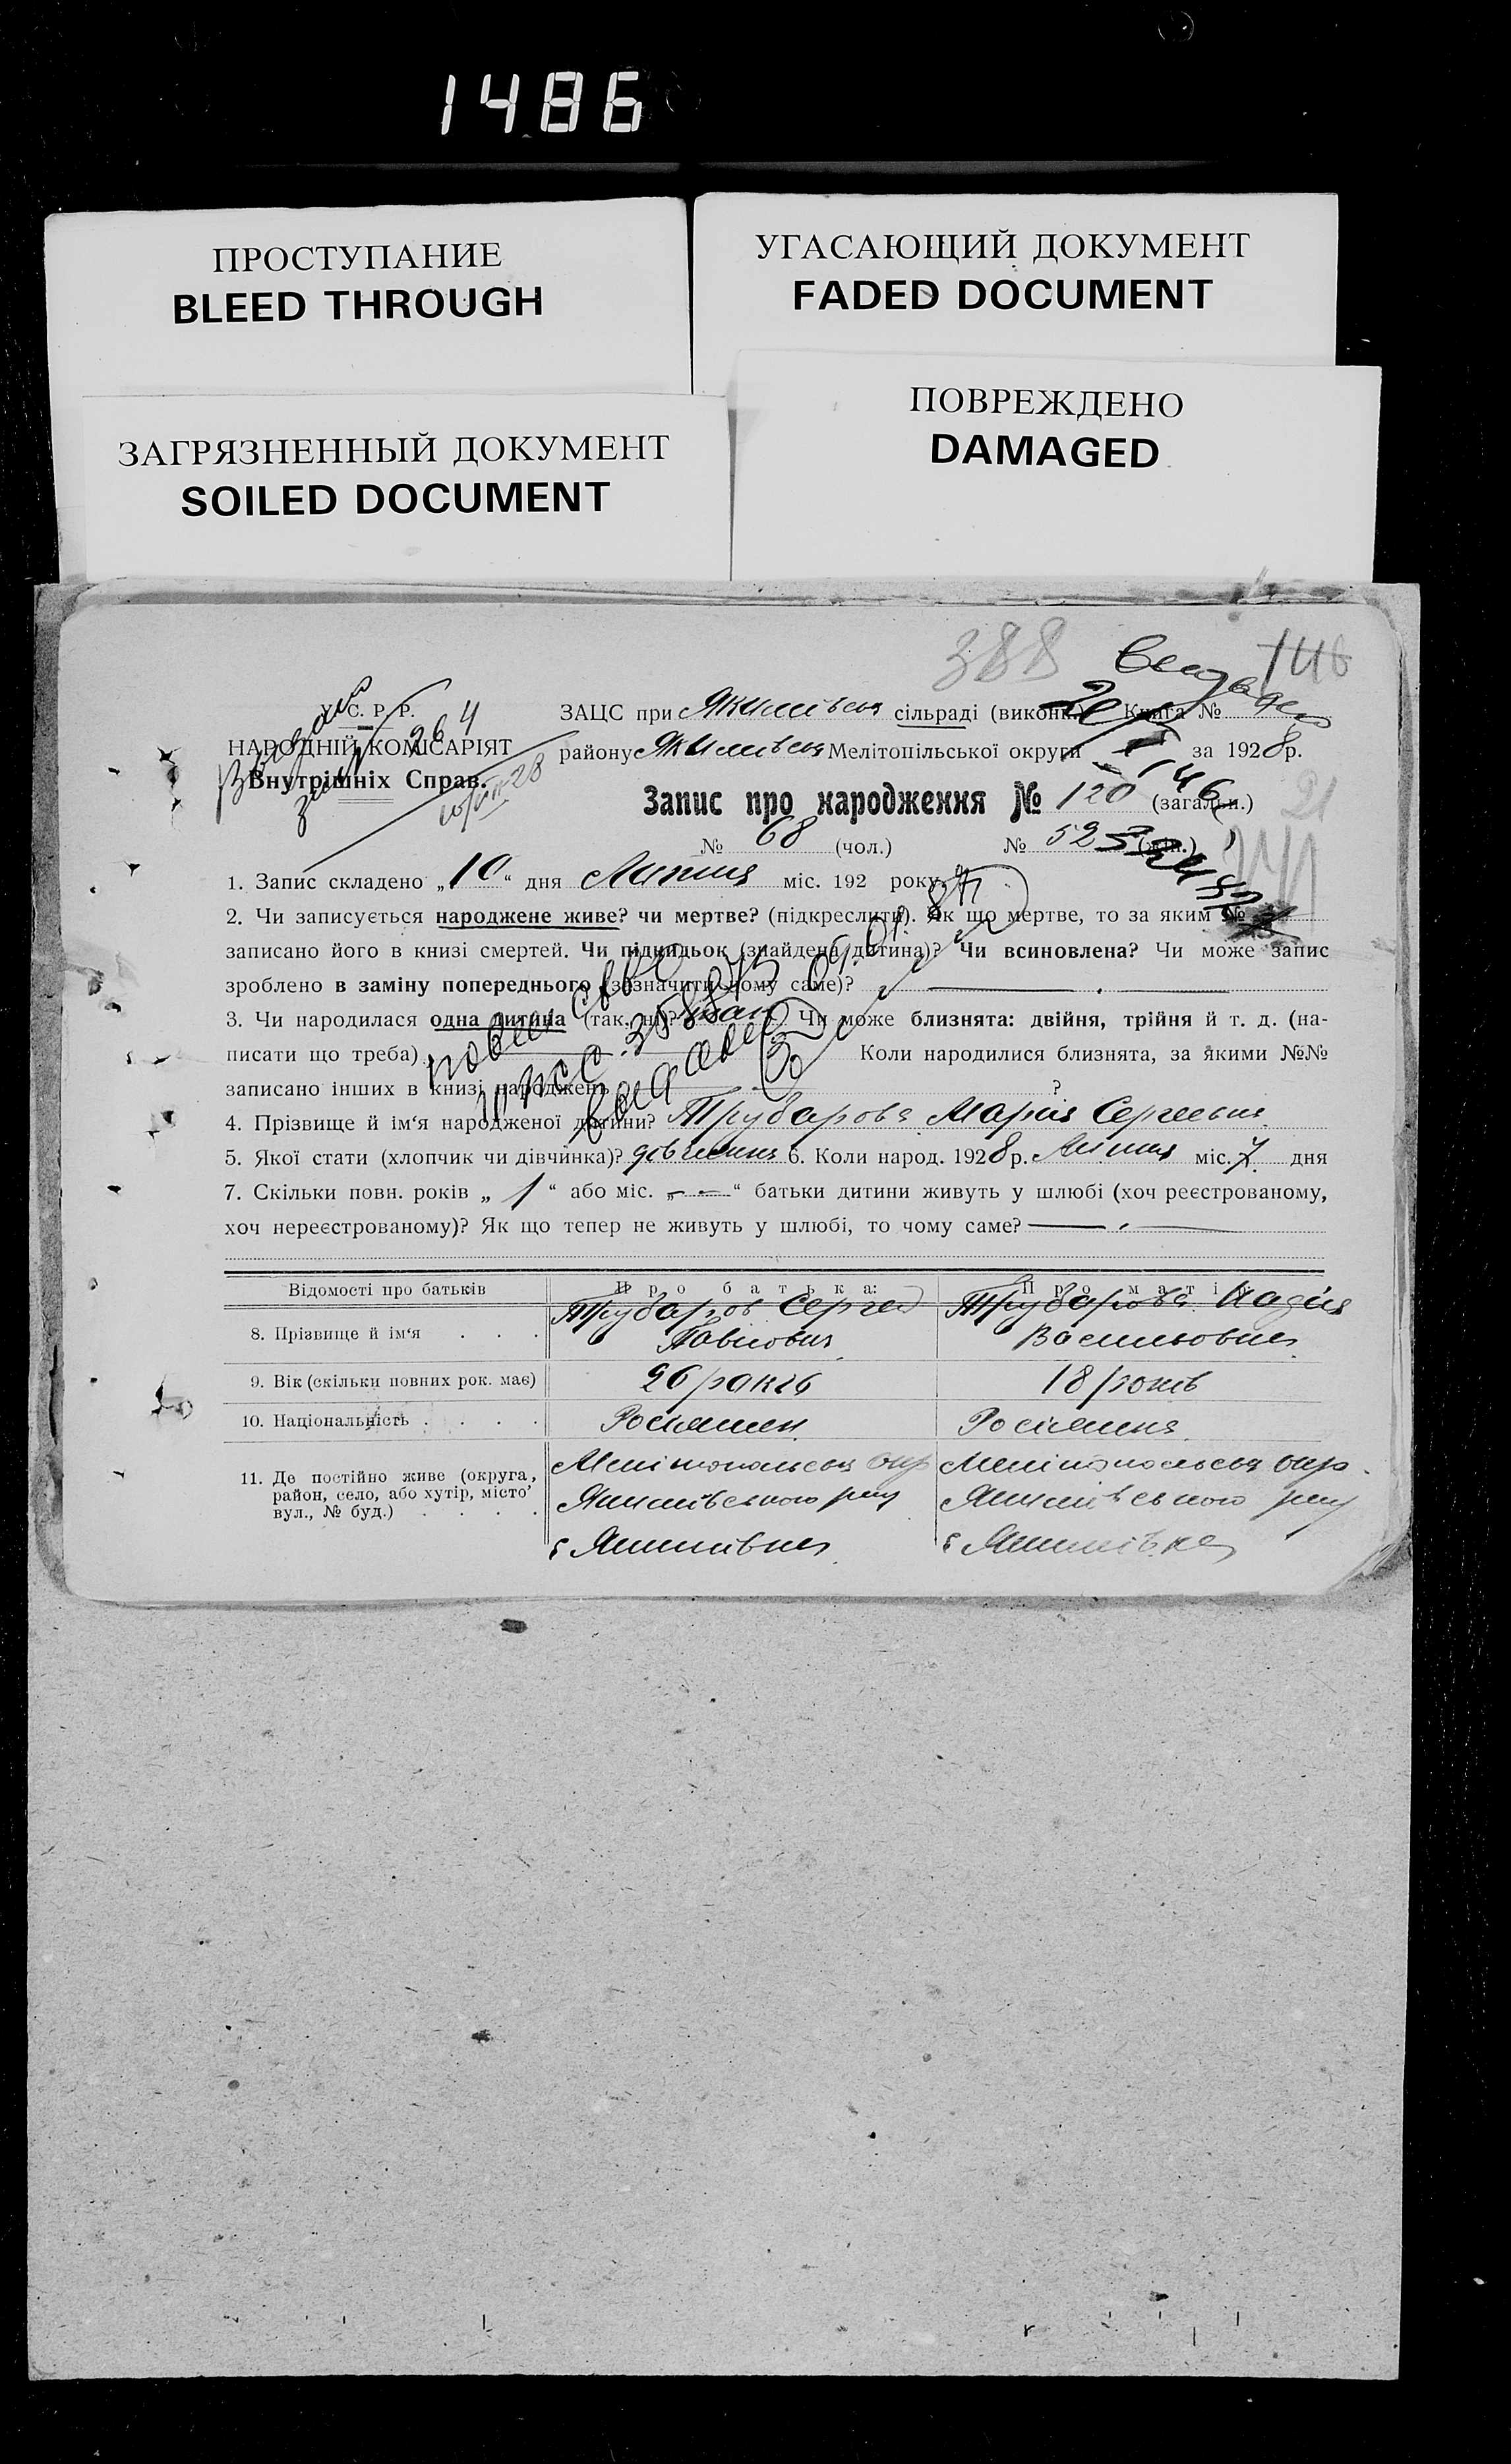 1486
ПРОСТУПАНИЕ
BLEED THROUGH
УГАСАЮЩИЙ ДОКУМЕНТ
FADED DOCUMENT
ЗАГРЯЗНЕННЫЙ ДОКУМЕНТ
SOILED DOCUMENT
ПОВРЕЖДЕНО
DAMAGED
388 146
У. С. Р. Р.
НАРОДНІЙ КОМІСАРІЯТ
Внутрішніх Справ.
264
ЗАЦС при сільраді (виконк.) Книга №
району Мелітопільської округи за 1928 р.
146
Запис про народження № 120 (загальн.) 21
№ 68 (чол.) № 52 (жін.)
1. Запис складено „10“ дня Липня міс. 192 року.
2. Чи записується народжене живе? чи мертве? (підкреслити). Як що мертве, то за яким №
записано його в книзі смертей. Чи підкидьок (знайдена дитина)? Чи всиновлена? Чи може запис
зроблено в заміну попереднього (зазначити чому саме)?
3. Чи народилася одна дитина (так, ні)? так Чи може близнята: двійня, трійня й т. д. (на-
писати що треба) Коли народилися близнята, за якими №№
записано інших в книзі народжень ?
4. Прізвище й ім‘я народженої дитини? Трубарова Мария Сергеевна
5. Якої стати (хлопчик чи дівчинка)? дівчинка 6. Коли народ. 1928 р. Липня міс. 7 дня
7. Скільки повн. років „ 1 “ або міс. „ — “ батьки дитини живуть у шлюбі (хоч реєстрованому,
хоч нереєстрованому)? Як що тепер не живуть у шлюбі, то чому саме?
Відомості про батьків Про батька: Про матір
8. Прізвище й ім‘я . . . Трубаров Сергей Трубарова Надія
Васильовна
9. Вік (скільки повних рок. має) 26 років 18 років
10. Національність . . . . Росіянин Росіянка
11. Де постійно живе (округа,
район, село, або хутір, місто
вул., № буд.) . . . .
Мелітопольська окр Мелітопольська окр.
Якимівського рну Якимівського рну
с Якимівка с Якимівка